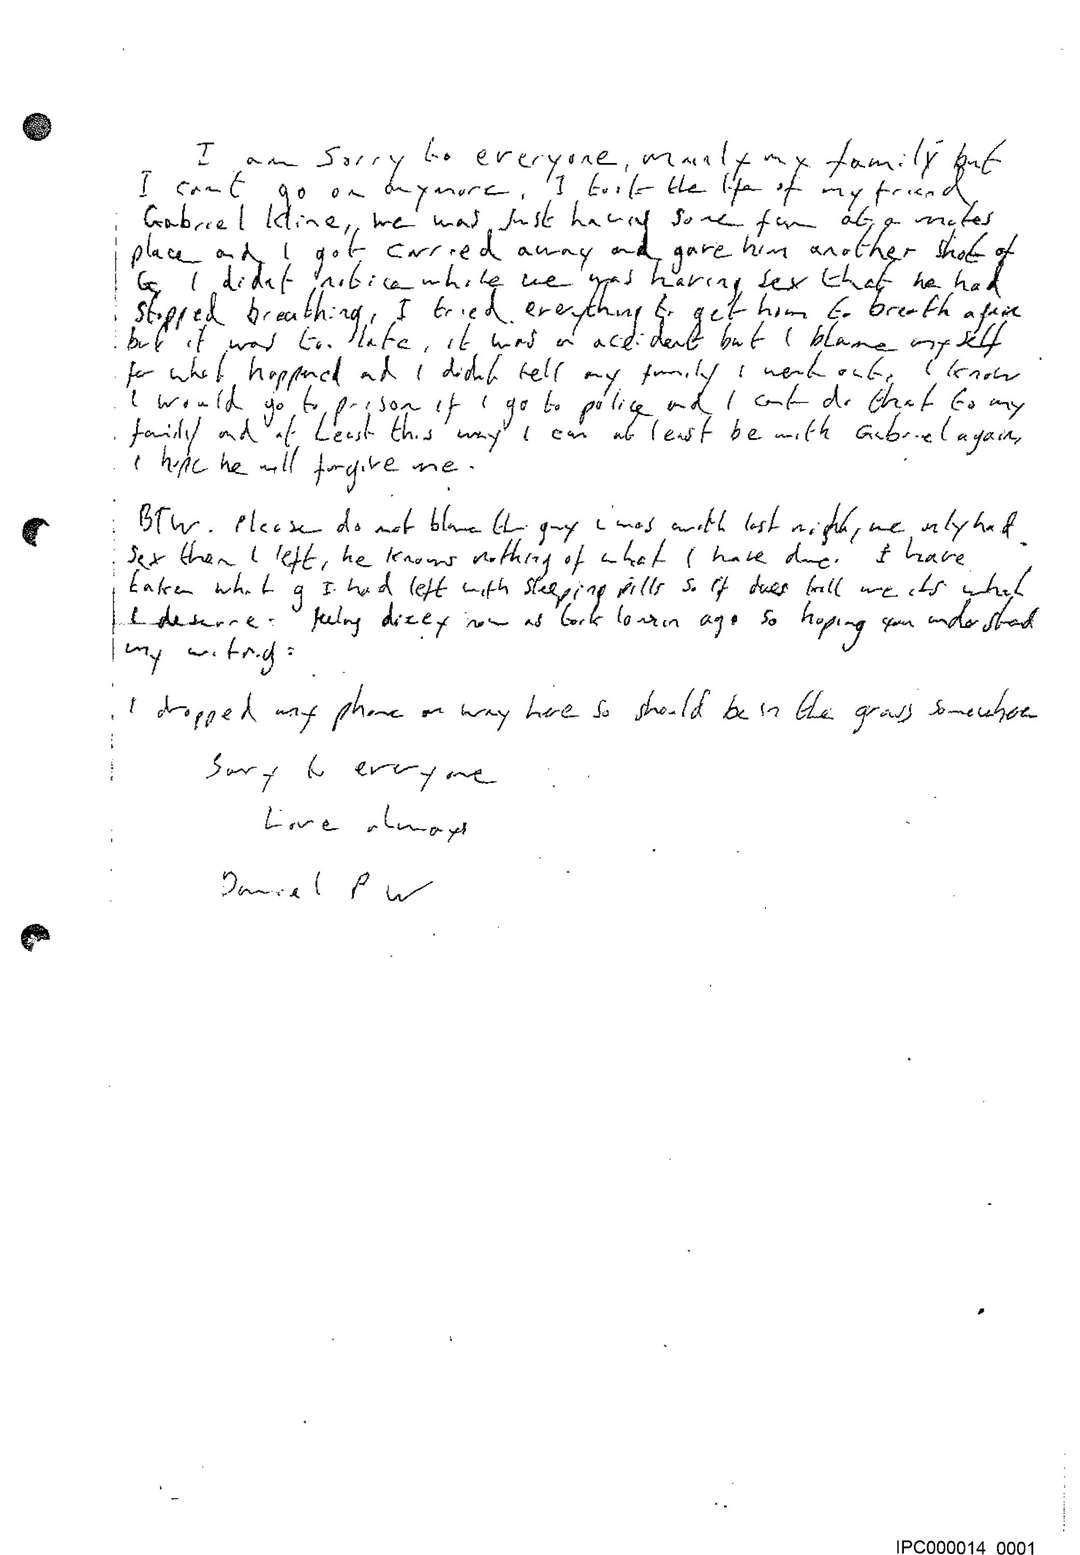 I am Sorry to everyone, mainly my family but
I cant go on anymore, I took the life of my friend
Gabriel Kline, we was just having some fun at a mates
place and I got carried away and gave him another shot of
G, I didnt notice while we was having sex that he had
stopped breathing, I tried everything to get him to breath again
but it was to late, it was a accident but I blame my self
for what happened and I didnt tell my family I went out. I know
I would go to prison if I go to police and I cant do that to my
family and at Least this way I can at least be with Gabriel again,
I hope he will forgive me.
BTW. Please do not blame the guy I was with last night, we only had
sex then I left, he knows nothing of what I have done. I have
taken what g I had left with sleeping pills so if it does kill me its what
I deserve. feeling dizzy now as took 10 min ago so hoping you understand
my writing.
I dropped my phone on way here so should be in the grass somewhere
Sorry to everyone
Love always
Daniel P W
IPC000014_0001